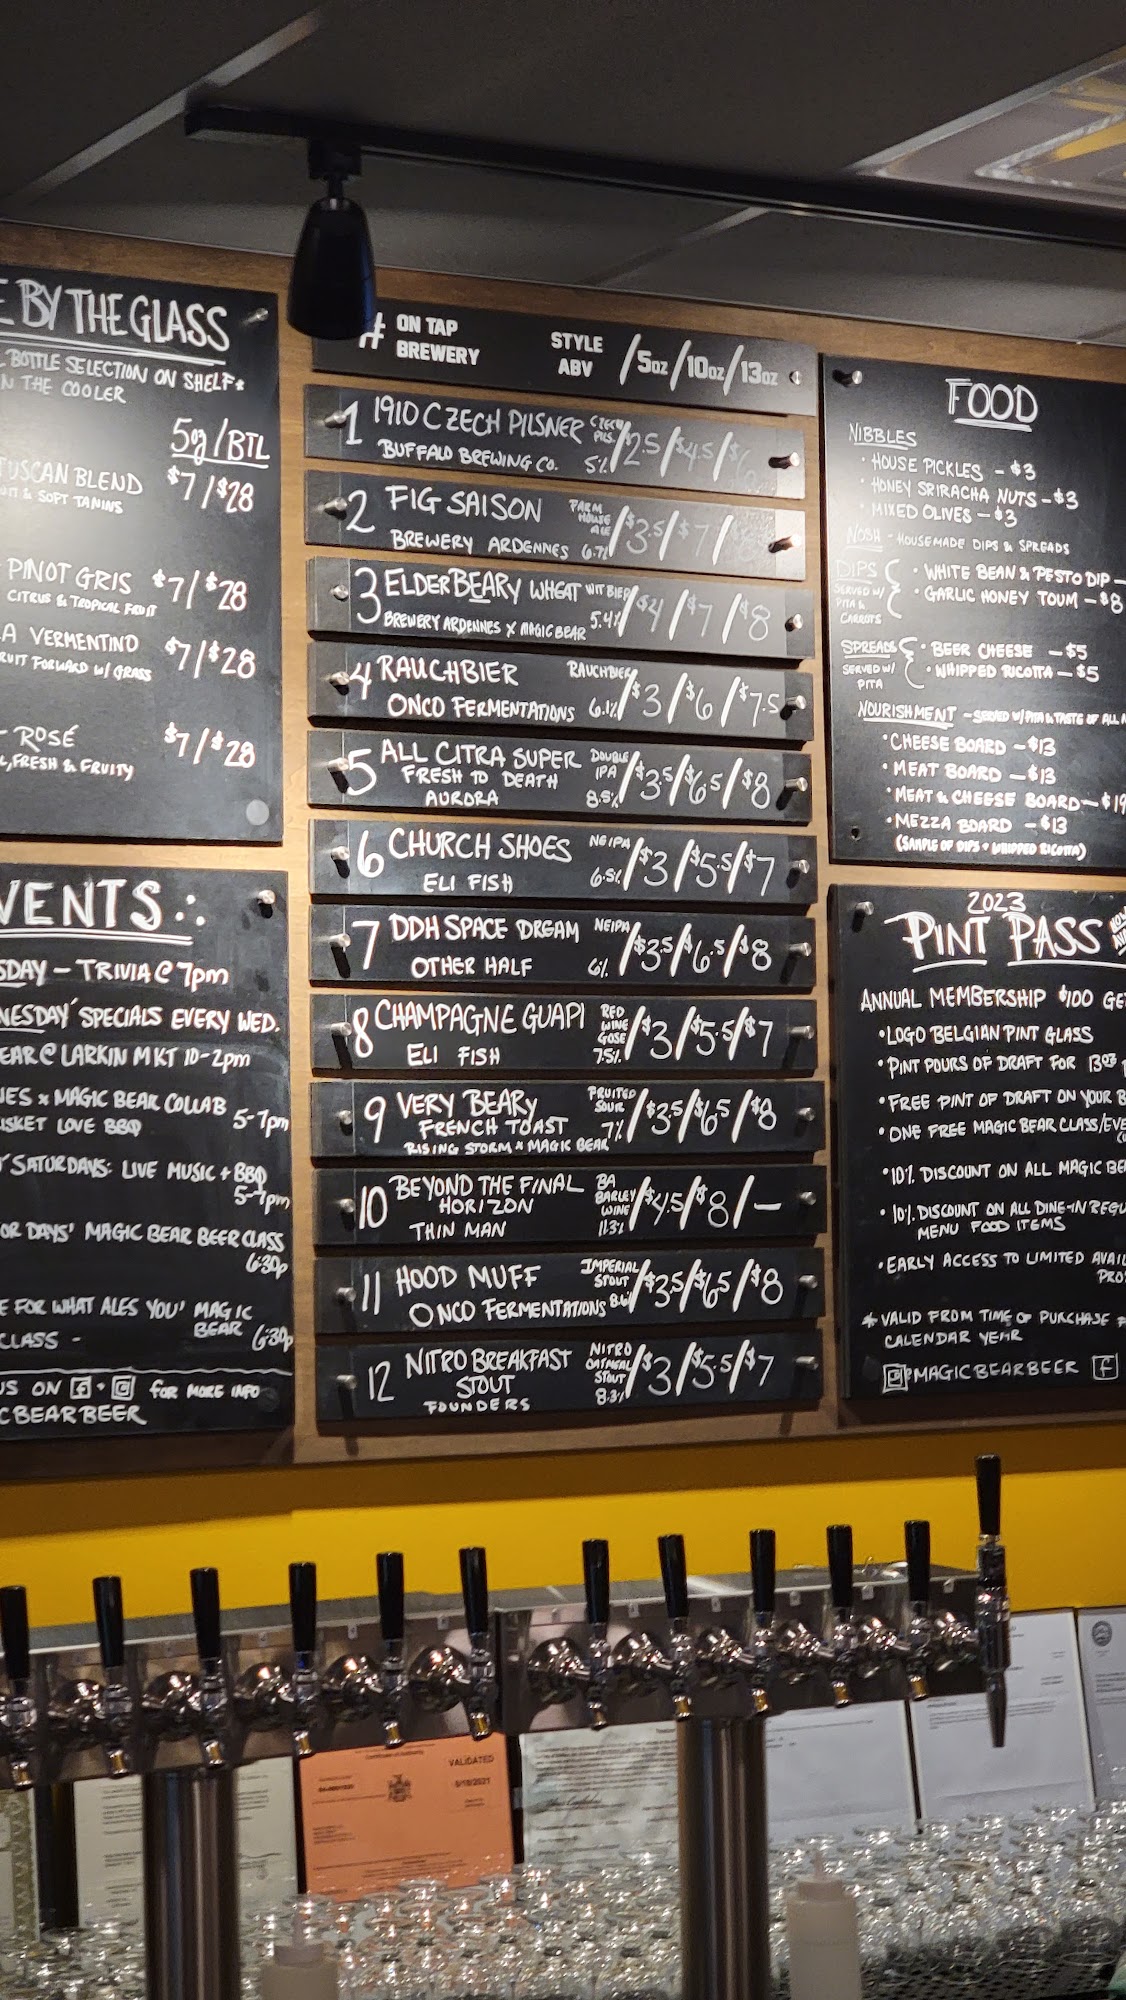 E BY THE GLASS
BOTTLE SELECTION ON SHELF &
N THE COOLER
5oz/BTL
TUSCAN BLEND $7/$28
& SOFT TANINS
PINOT GRIS $7/$28
CITRUS & TROPICAL FRUIT
A VERMENTINO $7/$28
RUIT FORWARD W/ GRASS
- ROSÉ $7/$28
, FRESH & FRUITY
VENTS
SDAY - TRIVIA @ 7pm
NESDAY' SPECIALS EVERY WED.
EAR @ LARKIN MKT 10-2pm
IES x MAGIC BEAR COLLAB
ISKET LOVE BBQ 5-7pm
SATURDAYS: LIVE MUSIC + BBQ
5-7pm
OR DAYS' MAGIC BEAR BEER CLASS
6:30p
E FOR WHAT ALES YOU' MAGIC
BEAR
CLASS - 6:30p
US ON f + FOR MORE INFO
CBEARBEER
# ON TAP
BREWERY
STYLE
ABV
/5oz/10oz/13oz
1 1910 CZECH PILSNER CZECH PILS. /$2.5/$4.5/$6
BUFFALO BREWING CO. 5%
2 FIG SAISON FARM HOUSE ALE /$3.5/$7/
BREWERY ARDENNES 6.7%
3 ELDERBEARY WHEAT WIT BIER /$4/$7/$8
BREWERY ARDENNES x MAGIC BEAR 5.4%
4 RAUCHBIER RAUCHBIER /$3/$6/$7.5
ONCO FERMENTATIONS 6.1%
5 ALL CITRA SUPER DOUBLE IPA /$3.5/$6.5/$8
FRESH TO DEATH
AURORA 8.5%
6 CHURCH SHOES NEIPA /$3/$5.5/$7
ELI FISH 6.5%
7 DDH SPACE DREAM NEIPA /$3.5/$6.5/$8
OTHER HALF 6%
8 CHAMPAGNE GUAPI RED WINE GOSE /$3/$5.5/$7
ELI FISH 7.5%
9 VERY BEARY FRUITED SOUR /$3.5/$6.5/$8
FRENCH TOAST 7%
RISING STORM x MAGIC BEAR
10 BEYOND THE FINAL BA BARLEY WINE /$4.5/$8/-
HORIZON
THIN MAN 11.3%
11 HOOD MUFF IMPERIAL STOUT /$3.5/$6.5/$8
ONCO FERMENTATIONS
12 NITRO BREAKFAST NITRO OATMEAL STOUT /$3/$5.5/$7
STOUT
FOUNDERS 8.3%
FOOD
NIBBLES
• HOUSE PICKLES - $3
• HONEY SRIRACHA NUTS - $3
• MIXED OLIVES - $3
NOSH - HOUSEMADE DIPS & SPREADS
DIPS • WHITE BEAN & PESTO DIP -
SERVED W/ • GARLIC HONEY TOUM - $8
PITA &
CARROTS
SPREADS • BEER CHEESE - $5
SERVED W/ • WHIPPED RICOTTA - $5
PITA
NOURISHMENT - SERVED W/ PITA & TASTE OF ALL
• CHEESE BOARD - $13
• MEAT BOARD - $13
• MEAT & CHEESE BOARD - $19
• MEZZA BOARD - $13
(SAMPLE OF DIPS + WHIPPED RICOTTA)
2023
PINT PASS
ANNUAL MEMBERSHIP $100 GE
• LOGO BELGIAN PINT GLASS
• PINT POURS OF DRAFT FOR 13oz
• FREE PINT OF DRAFT ON YOUR B
• ONE FREE MAGIC BEAR CLASS/EVE
• 10% DISCOUNT ON ALL MAGIC BE
• 10% DISCOUNT ON ALL DINE-IN REGU
MENU FOOD ITEMS
• EARLY ACCESS TO LIMITED AVAIL
PRO
* VALID FROM TIME OF PURCHASE
CALENDAR YEAR
@MAGICBEARBEER f
VALIDATED